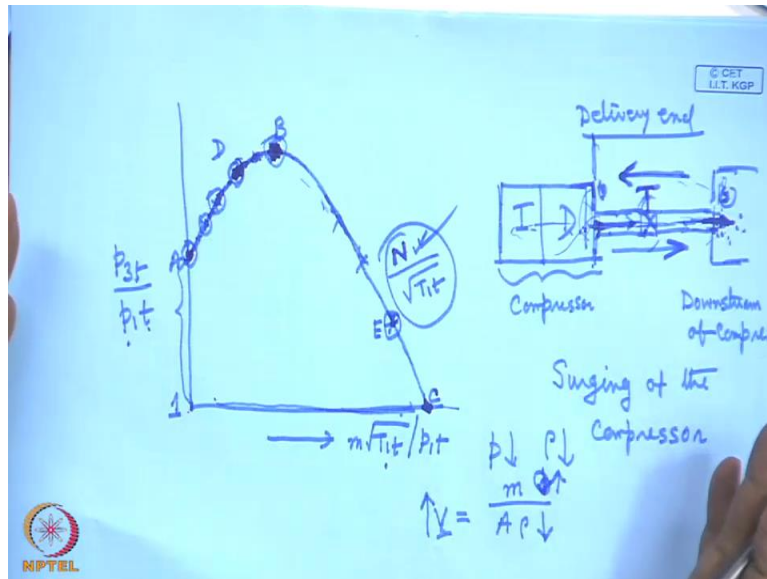 © CET
I.I.T. KGP
Delivery end
B
D
A
E
C
1
P3t
P1t
N
√T1t
m√T1t / P1t
I D
Compressor
Downstream
of Compre
Surging of the
Compressor
p↓ ρ↓
↑V = m ↑
A ρ ↓
NPTEL